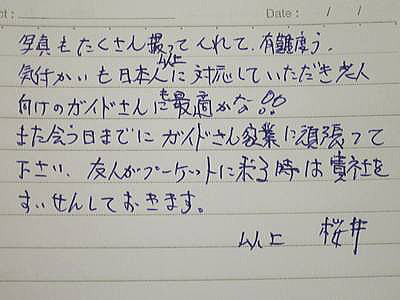 Date : / /
写真もたくさん撮ってくれて、有難度う。
気付かいも日本人以上に対応していただき老人
向けのガイドさんにも最適かな!!
また会う日までにガイドさん家業に頑張って
下さい、友人がプーケットに来る時は貴社を
すいせんしておきます。
以上 桜井